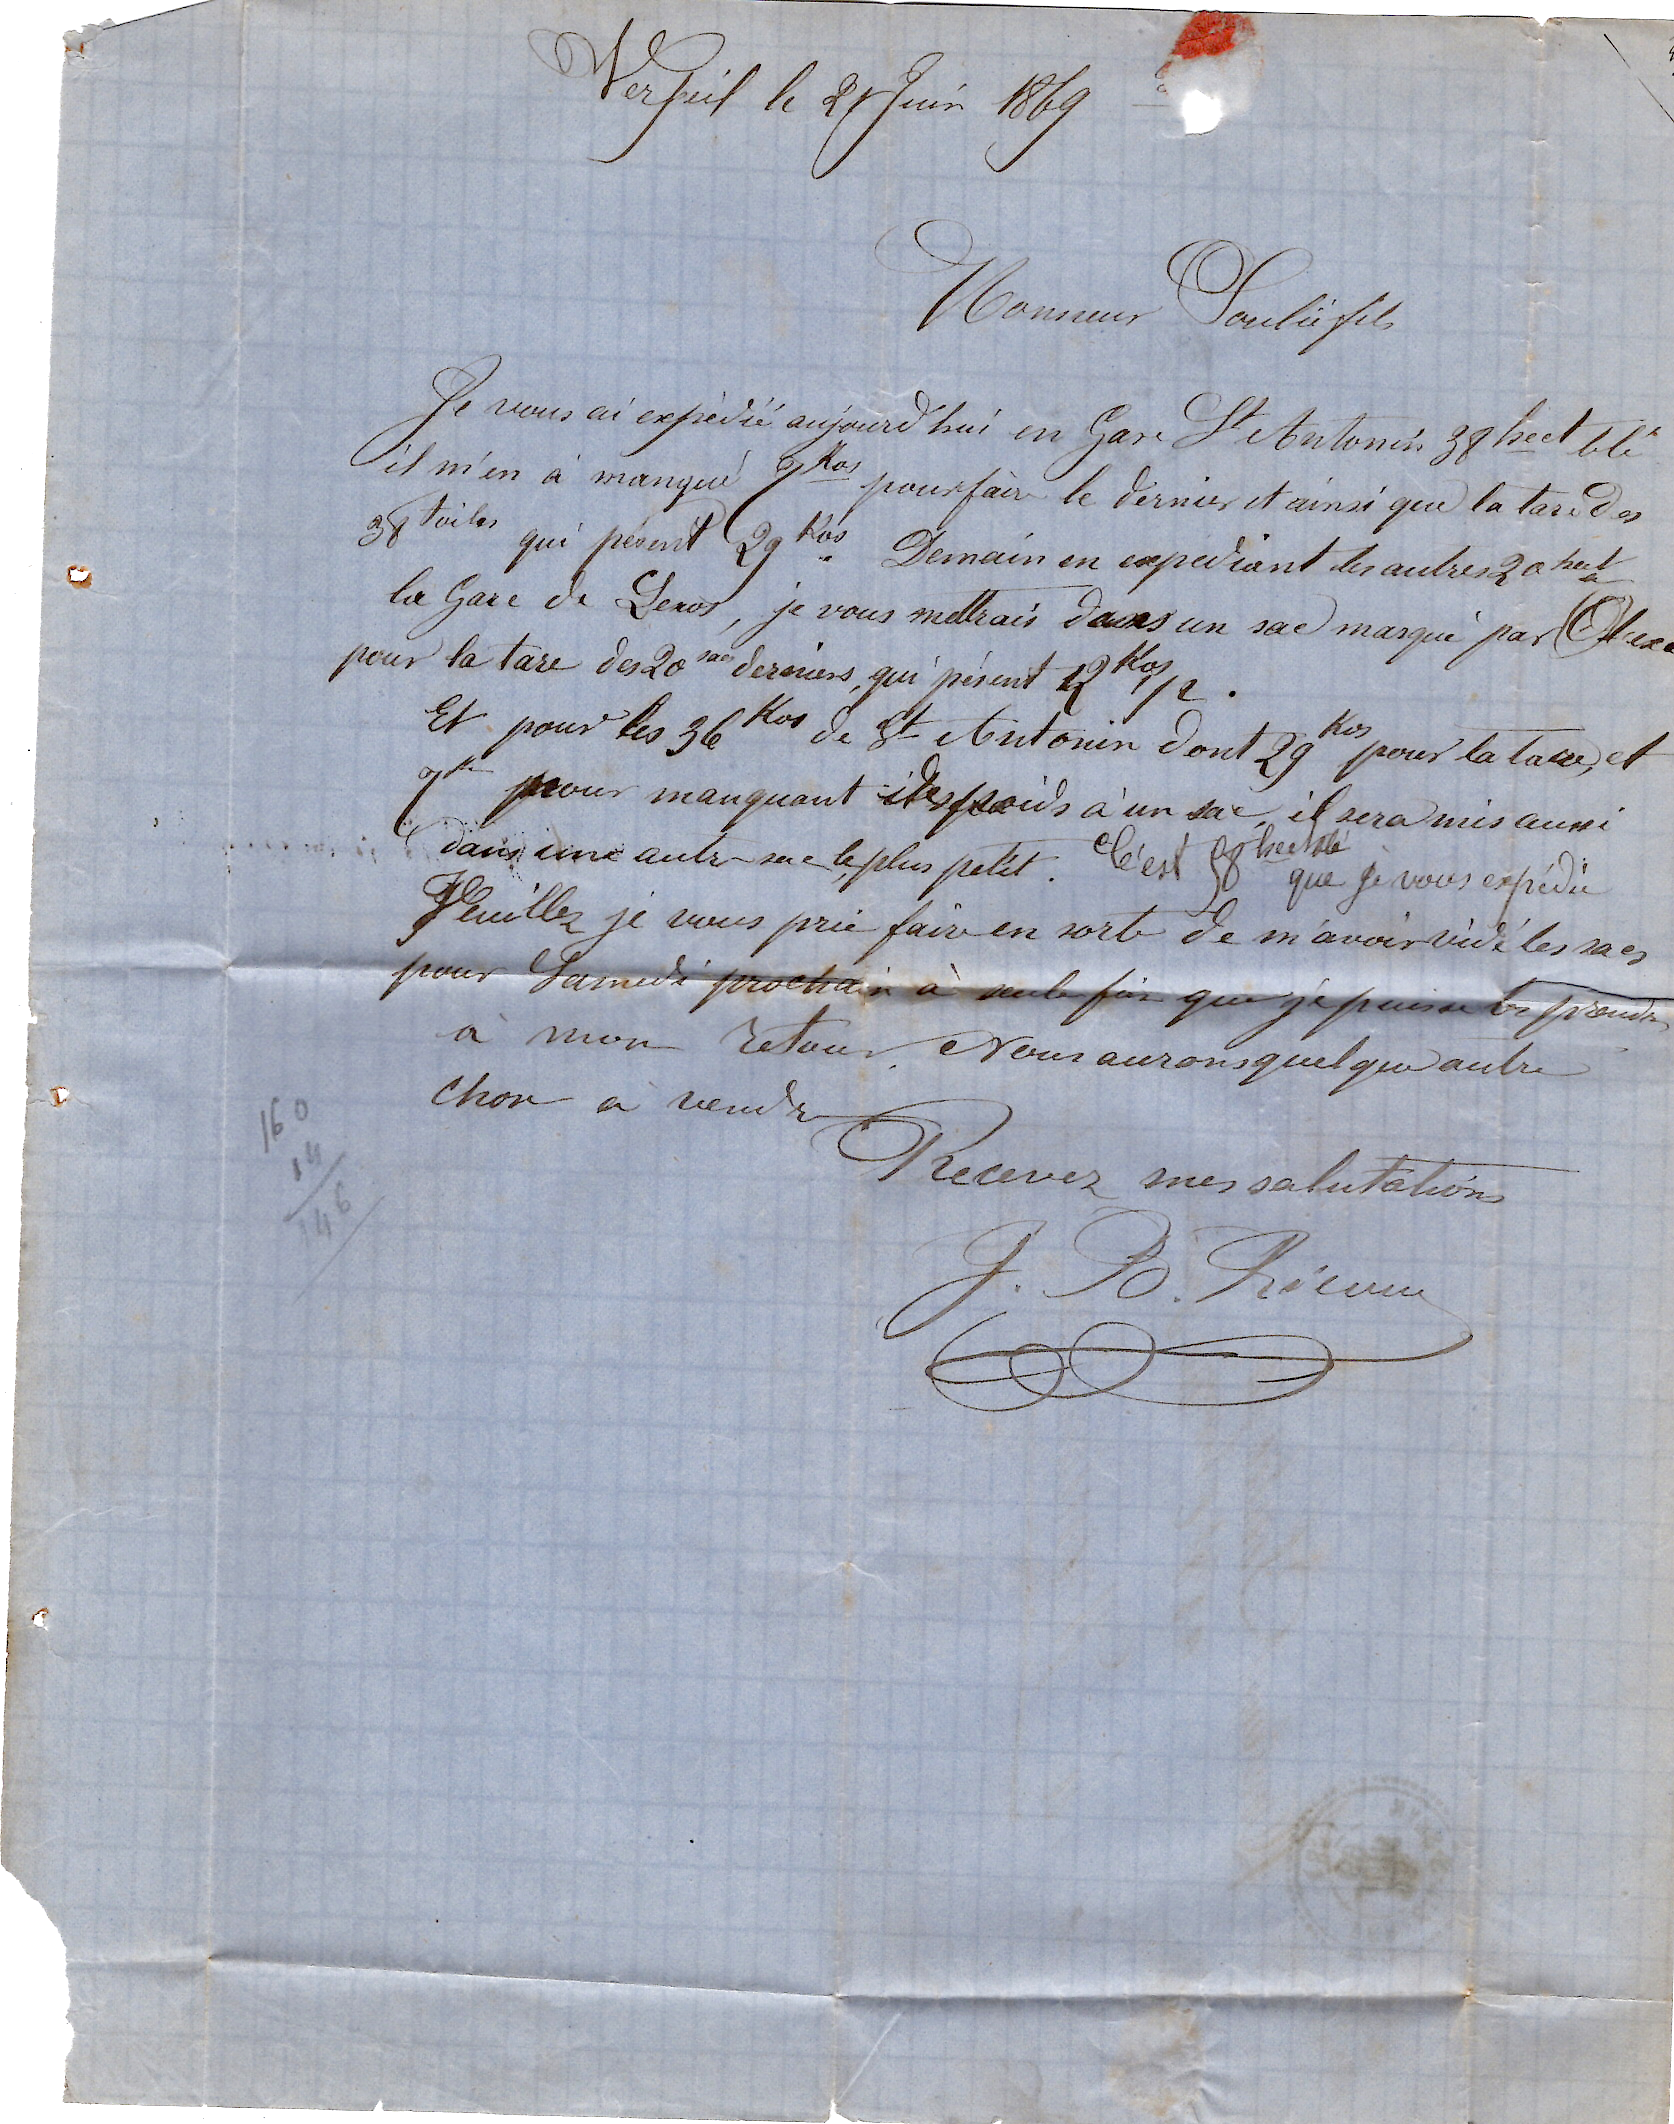 Verfeil le 21 Juin 1869
Monsieur Soulié fils
Je vous ai expédié aujourd'hui en Gare St Antonin 38 hect blé
il m'en à manqué 7 Kos pour faire le dernier et ainsi que la tare des
38 toiles qui pésent 29 Kos. Demain en expédiant les autres 20 hect a
la Gare de Lexos, je vous mettrais dans un sac marqué par
pour la tare des 20 sacs derniers, qui pésent 12 Kos 1/2.
Et pour les 36 Kos de St Antonin dont 29 Kos pour la tare, et
7 pour manquant poids à un sac, il sera mis aussi
dans une autre sac le plus petit. C'est 58 hect blé que je vous expédie
Veuillez je vous prie faire en sorte de m'avoir vidé les sacs
pour Samedi prochain à seule fin que je puisse les prendre
à mon retour. Nous aurons quelque autre
chose a vendre
Recevez mes salutations
J. B.
160
14
146